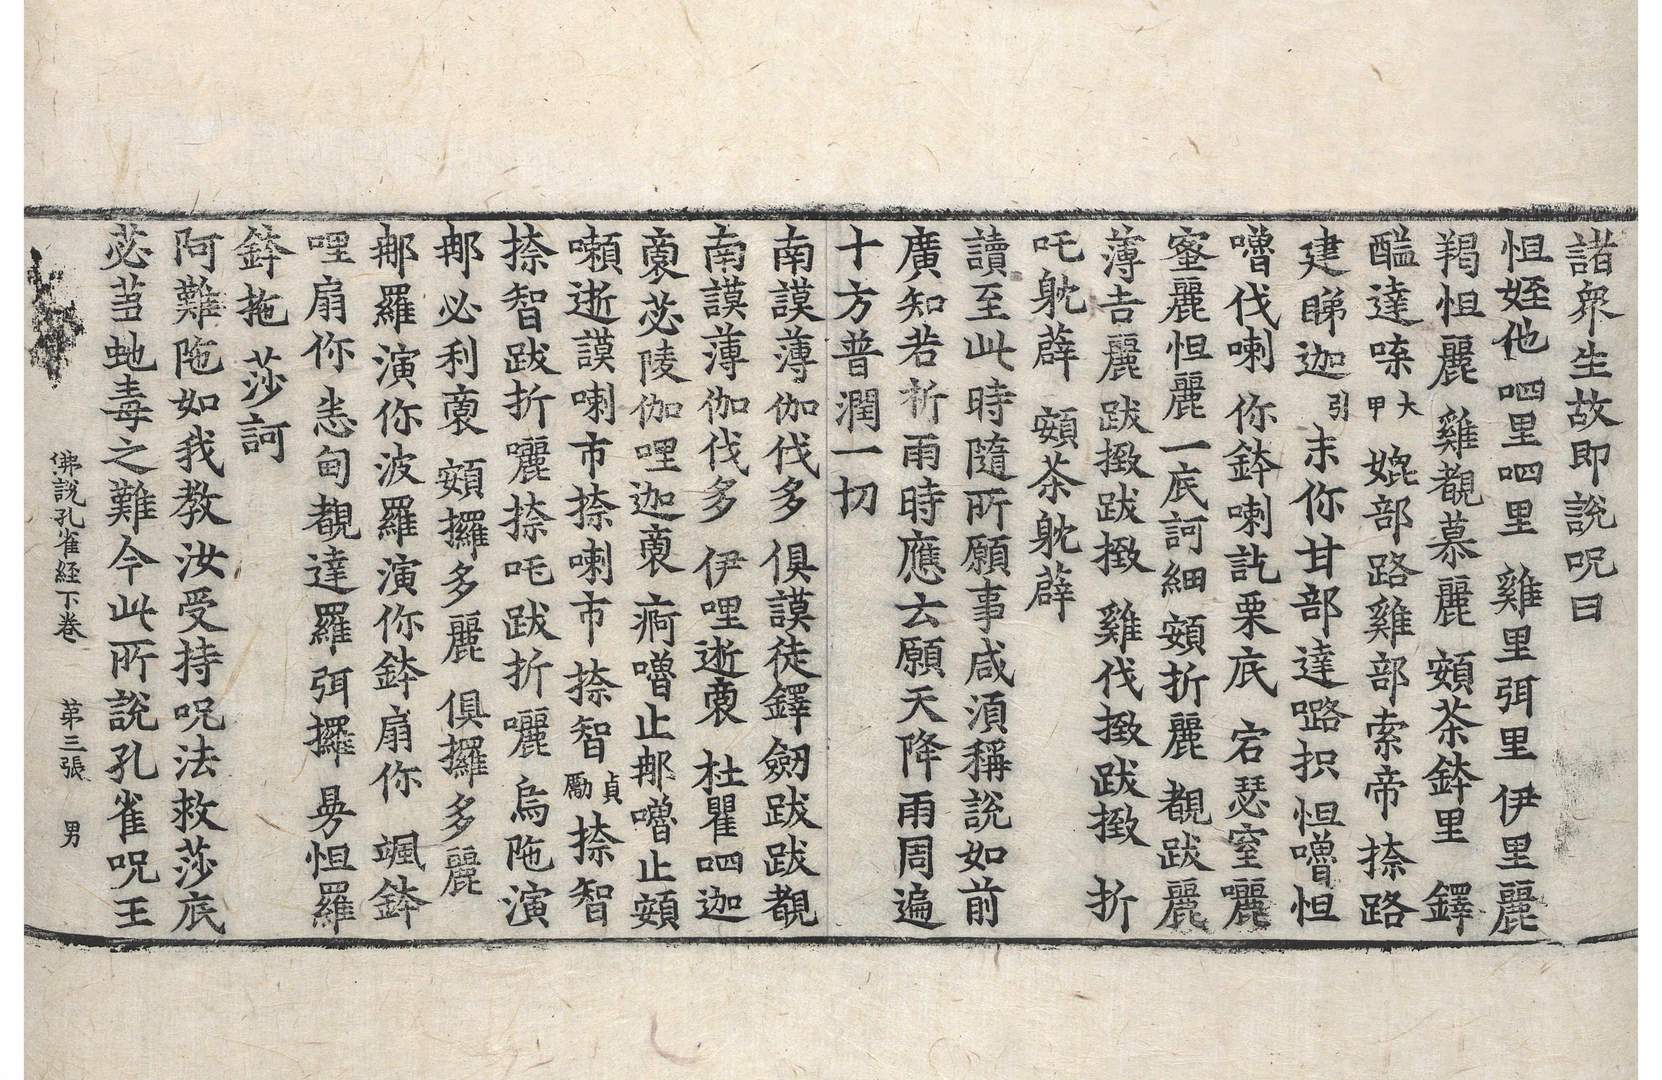 諸眾生故即說呪曰
怛姪他 呬里呬里 雞里弭里 伊里麗
羯怛麗 雞覩慕麗 頞茶鉢里 鐸
醯達㗚大甲 媲部路雞部索帝 捺路
建睇迦引 末你甘部達㗨抧怛嚕怛
嚕伐喇 你鉢喇訖栗底 宕瑟窒囇
蜜麗怛麗一底訶細 頞折麗 覩跋麗
薄告麗跋撽跋撽 雞伐撽跋撽 折
吒躭薜 頞茶躭薜
讀至此時隨所願事咸須稱說如前
廣知若祈雨時應云願天降雨周遍
十方普潤一切
南謨薄伽伐多 俱謨徒鐸劒跋跋覩
南謨薄伽伐多 伊哩逝裒 杜瞿呬迦
裒苾陵伽哩迦裒 痾嚕止郍嚕止頞
嚩逝謨喇市捺喇市 捺智貞勵 捺智
捺智跋折囇捺吒跋折囇 烏陁演
郍必利裒 頞攞多麗 俱攞多麗
郍羅演你波羅演你鉢扇你 颯鉢
哩扇你 恙匃覩達羅弭攞 㝵怛羅
鉢拖 莎訶
阿難陁如我教汝受持呪法救莎底
苾芻虵毒之難今此所說孔雀呪王
佛說孔雀経下卷 第三張 男